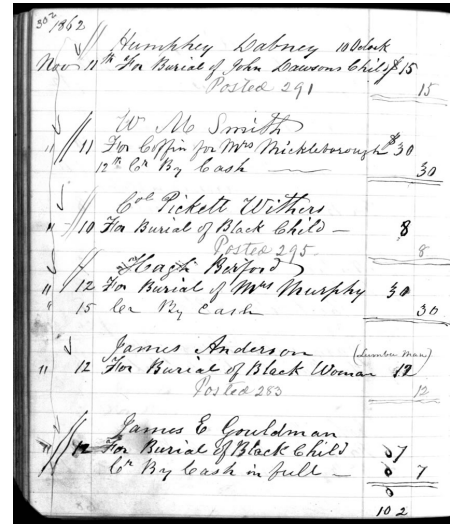 302 1862
Humphrey Dabney 10 Oclock
Nov 11th For Burial of John Dawsons Child $15
Posted 291 15
W M Smith
" 11 For Coffin for Mrs Mickleborough $30
12th Cr By Cash 30
Col Pickett Withers
" 10 For Burial of Black Child 8
Posted 295 8
Hugh
" 12 For Burial of Mrs Murphy 30
" 15 Cr By Cash 30
James Anderson (Lumber Man)
" 12 For Burial of Black Woman 12
Posted 283 12
James E Gouldman
" 12 For Burial of Black Child 7
Cr By Cash in full 7
102